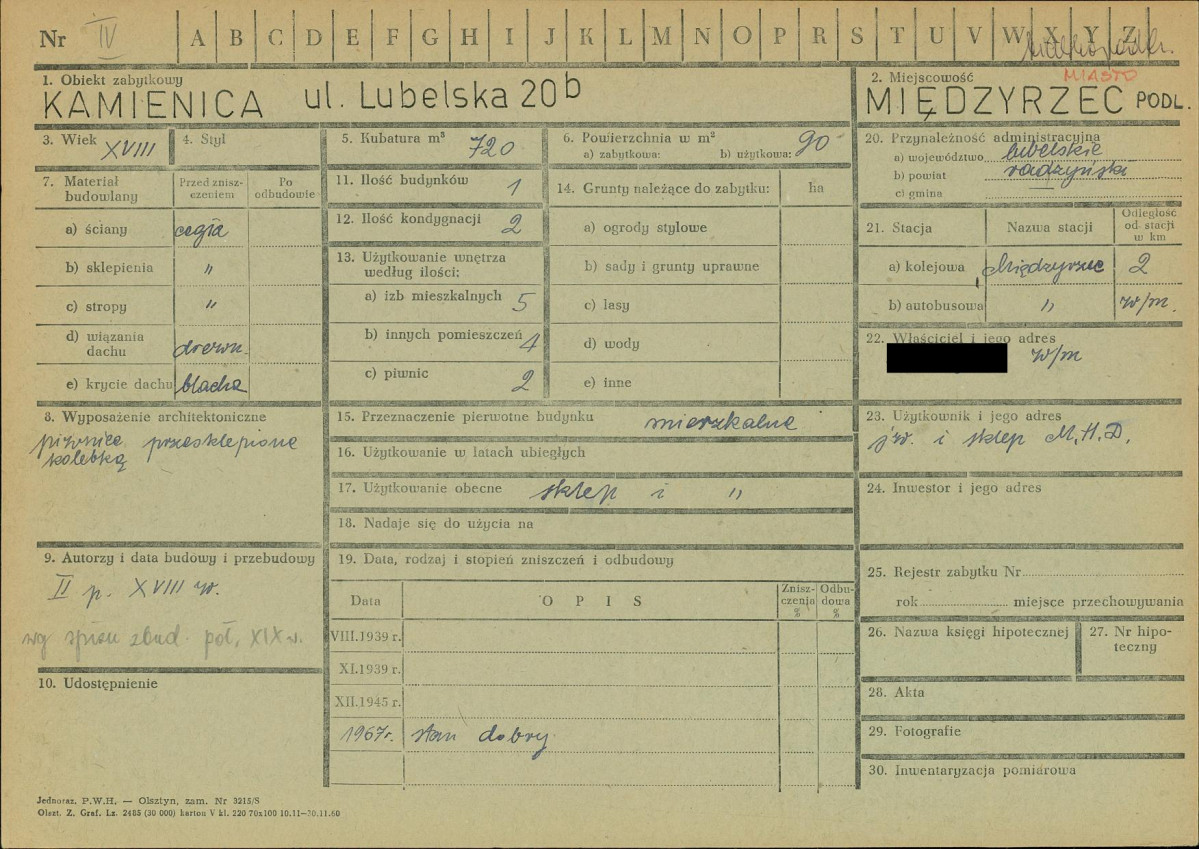 Nr IV A B C D E F G H I J K L M N O P R S T U V W X Y Z
1. Obiekt zabytkowy
KAMIENICA ul. Lubelska 20b
2. Miejscowość
MIASTO
MIĘDZYRZEC PODL.
3. Wiek XVIII
4. Styl
5. Kubatura m³ 720
6. Powierzchnia w m²
a) zabytkowa: b) użytkowa: 90
7. Materiał budowlany
Przed zniszczeniem
Po odbudowie
a) ściany cegła
b) sklepienia "
c) stropy "
d) wiązania dachu drewn.
e) krycie dachu blacha
8. Wyposażenie architektoniczne
piwnice przesklepione
kolebką
9. Autorzy i data budowy i przebudowy
II p. XVIII w.
wg spisu zbud. poł. XIX w.
10. Udostępnienie
11. Ilość budynków 1
12. Ilość kondygnacji 2
13. Użytkowanie wnętrza
według ilości:
a) izb mieszkalnych 5
b) innych pomieszczeń 4
c) piwnic 2
14. Grunty należące do zabytku: ha
a) ogrody stylowe
b) sady i grunty uprawne
c) lasy
d) wody
e) inne
15. Przeznaczenie pierwotne budynku mieszkalne
16. Użytkowanie w latach ubiegłych
17. Użytkowanie obecne sklep i "
18. Nadaje się do użycia na
19. Data, rodzaj i stopień zniszczeń i odbudowy
Data O P I S Zniszczenia % Odbudowa %
VIII.1939 r.
XI.1939 r.
XII.1945 r.
1967r. stan dobry
20. Przynależność administracyjna
a) województwo lubelskie
b) powiat radzyński
c) gmina —
21. Stacja Nazwa stacji Odległość od stacji w km
a) kolejowa Międzyrzec 2
b) autobusowa " w/m
22. Właściciel i jego adres
w/m
23. Użytkownik i jego adres
jw. i sklep M.H.D.
24. Inwestor i jego adres
25. Rejestr zabytku Nr
rok miejsce przechowywania
26. Nazwa księgi hipotecznej
27. Nr hipoteczny
28. Akta
29. Fotografie
30. Inwentaryzacja pomiarowa
Jednoraz. P.W.H. — Olsztyn, zam. Nr 3215/S
Olszt. Z. Graf. Lz. 2485 (30 000) karton V kl. 220 70x100 10.11-30.11.60